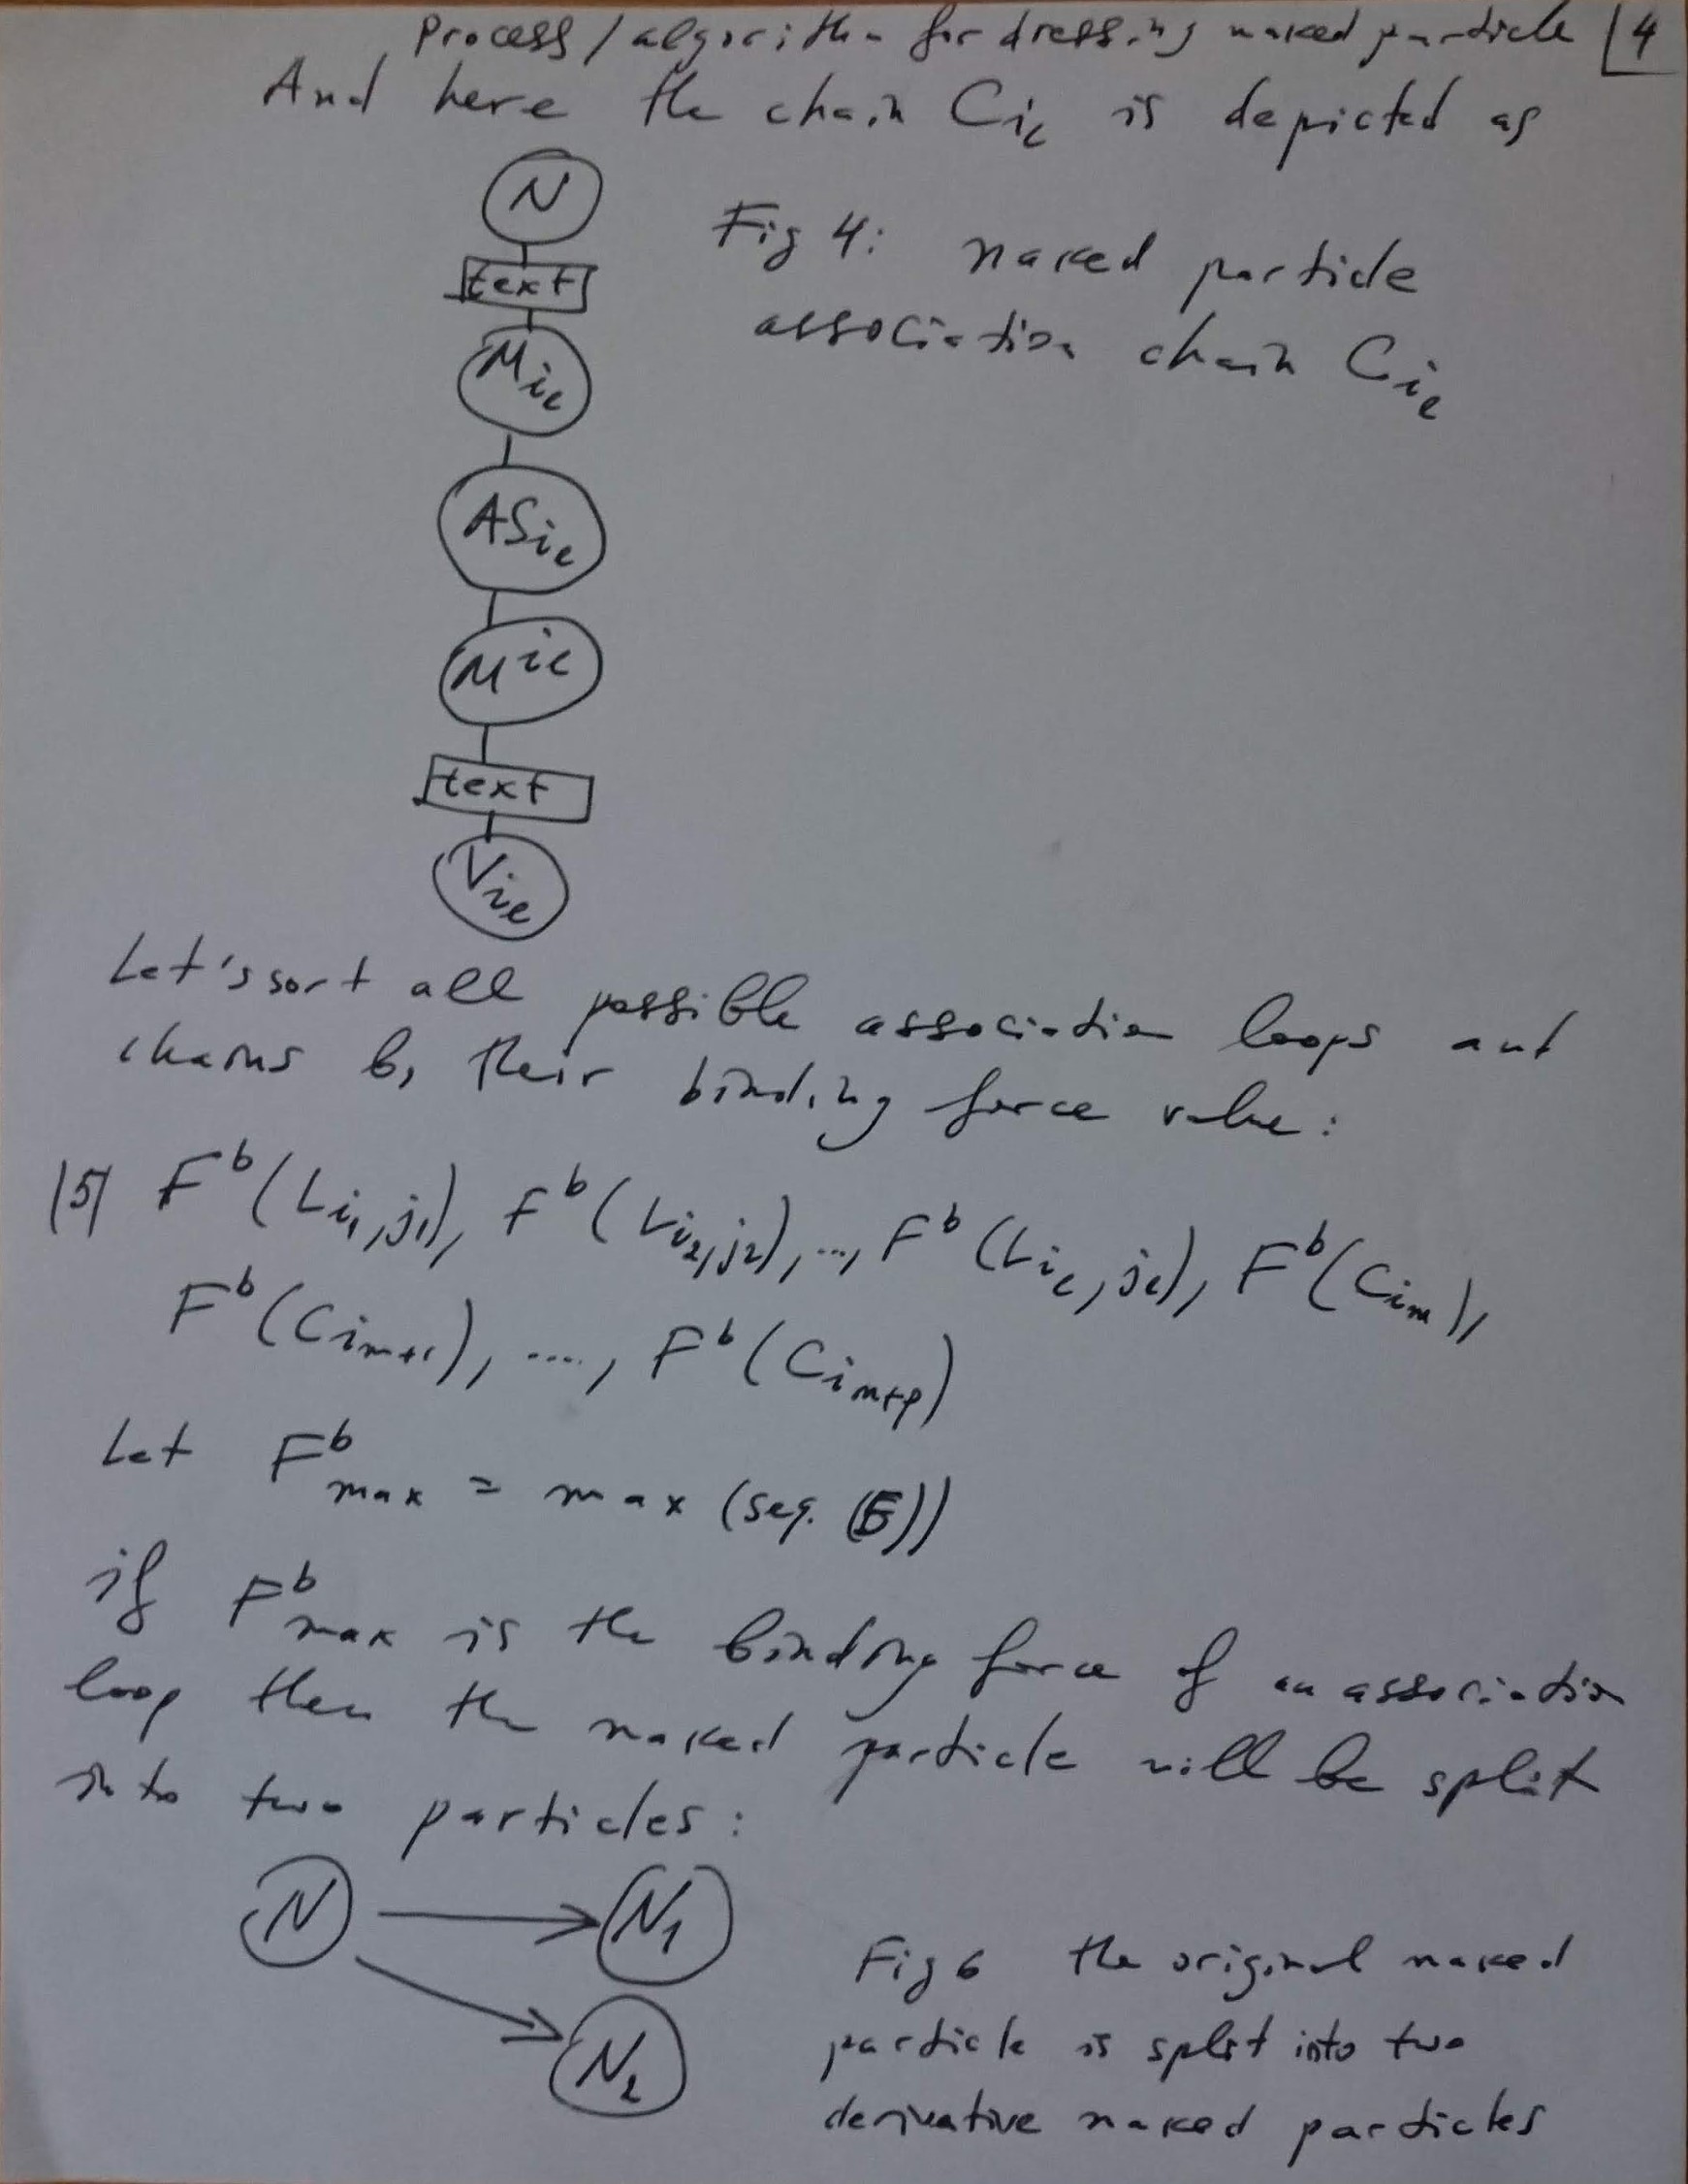 Process/algorithm for dressing naked particle 4
And here the chain C_{i_e} is depicted as
N
text
M_{i_e}
AS_{i_e}
M^{ie}
text
V_{i_e}
Fig 4: naked particle
association chain C_{i_e}
Let's sort all possible association loops and
chains by their binding force value:
(5) F^b(L_{i_1,j_1}), F^b(L_{i_2,j_2}), ..., F^b(L_{i_e,j_e}), F^b(C_{i_m}),
F^b(C_{i_{m+1}}), ...., F^b(C_{i_{m+p}})
Let F^b_{max} = max (seq. (5))
if F^b_{max} is the binding force of an association
loop then the naked particle will be split
into two particles:
N → N_1
N_2
Fig 6 the original naked
particle is split into two
derivative naked particles